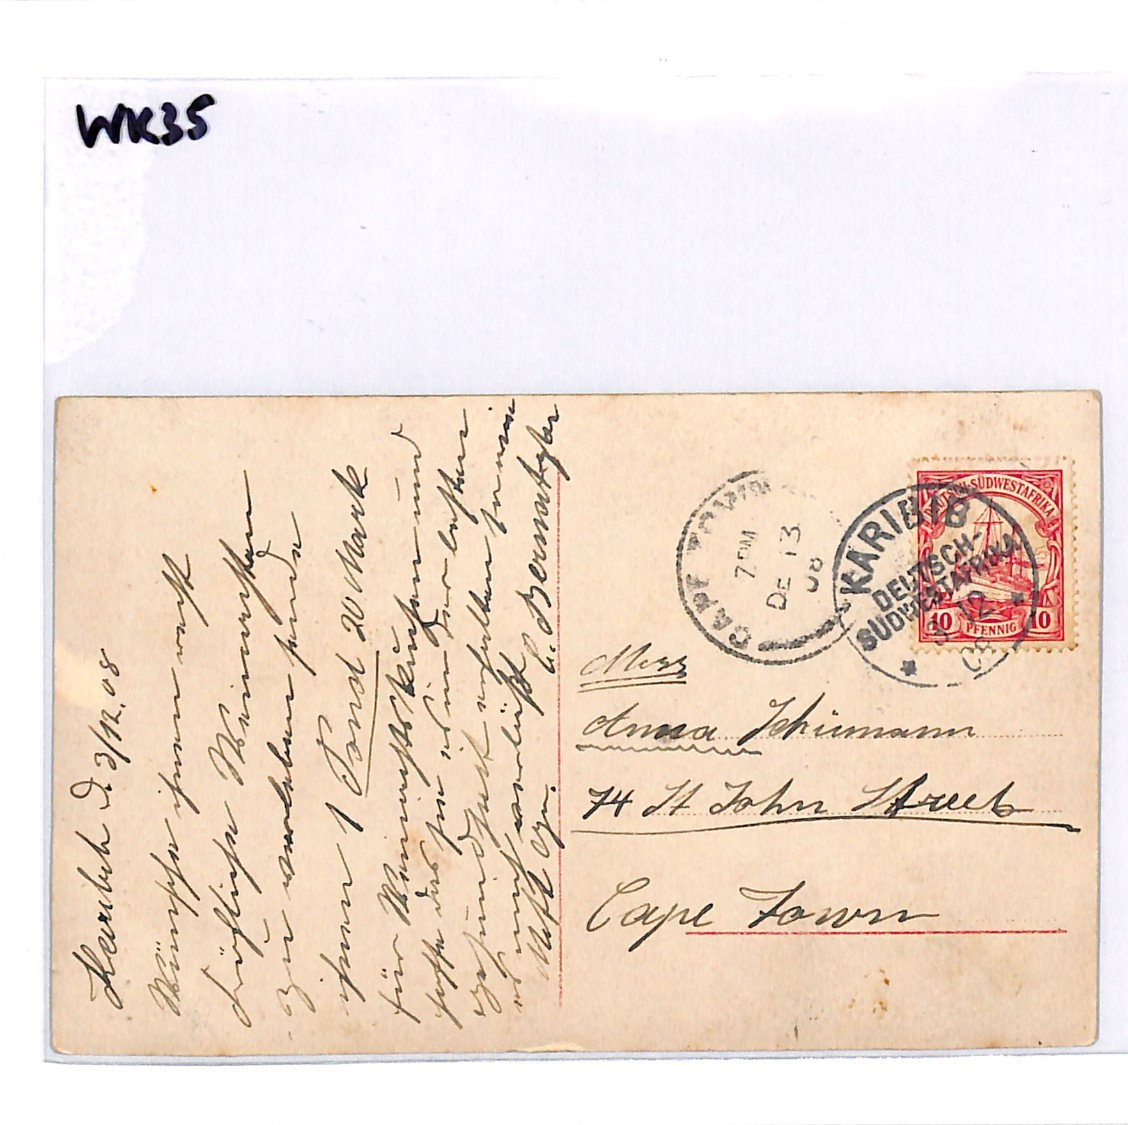 WK35
Karibib d. 3/12.08
Wünsche Ihnen recht
fröhliche Weinnachten
zu
Ihnen 1 Pond 20 Mark
für Weinnachtskuchen und
hoffe das sie ihn in der besten
gesundheit erhalten
Mit
CAPE TOWN
7 PM
DE 13
08
KARIBIB
DEUTSCH-
SÜDWESTAFRIKA
3 12
08
DEUTSCH-SÜDWESTAFRIKA
10 PFENNIG 10
Miss
Anna Schümann
74 St John Street
Cape Town